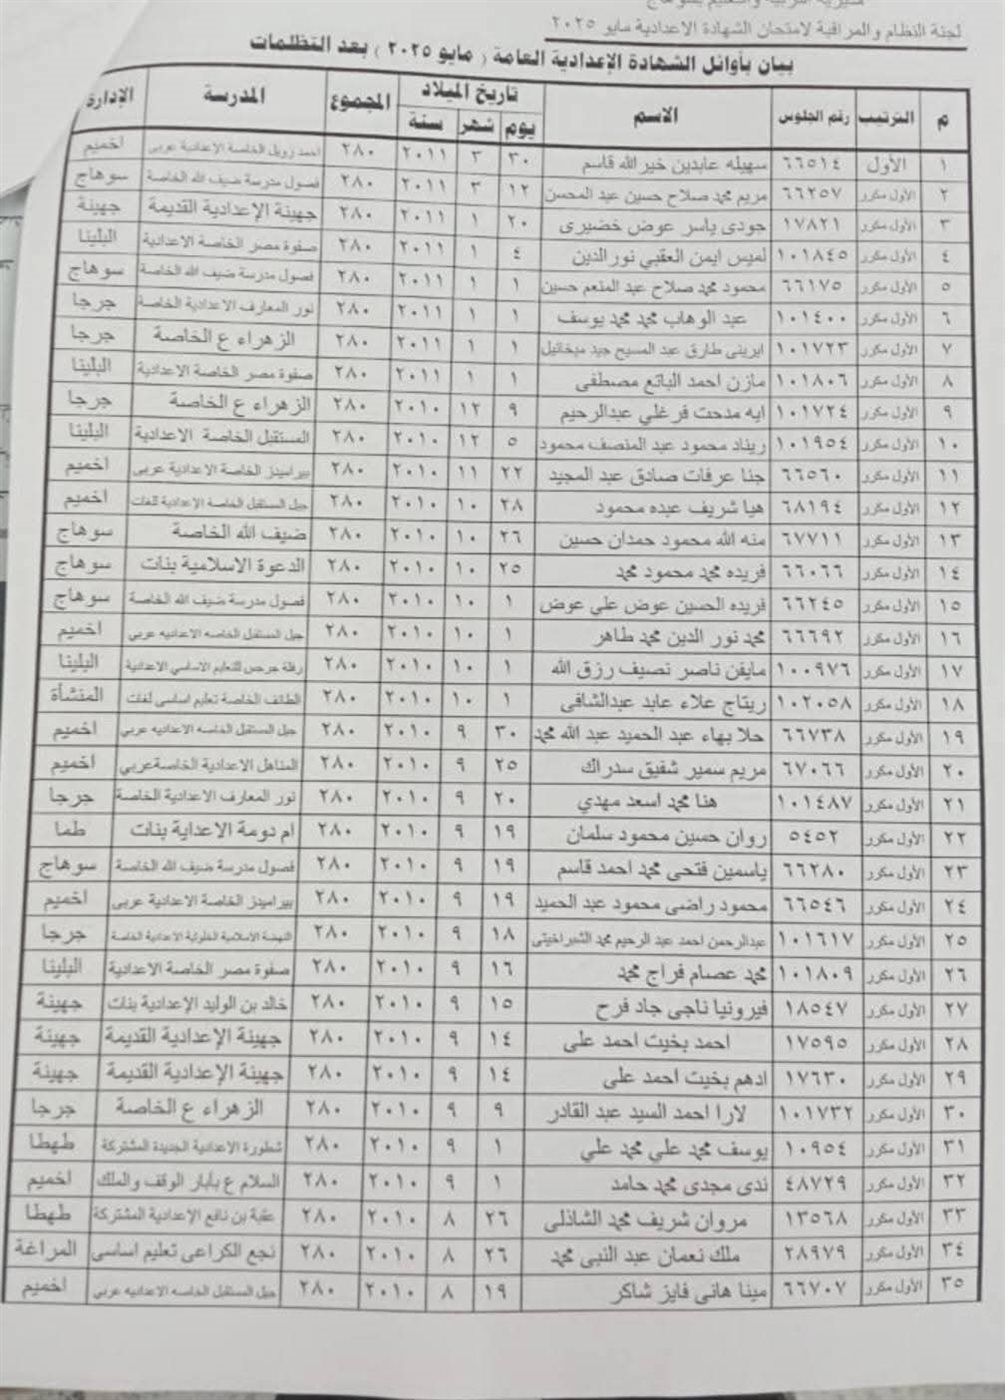 مديرية التربية والتعليم بسوهاج
لجنة النظام والمراقبة لامتحان الشهادة الاعدادية مايو ٢٠٢٥
بيان بأوائل الشهادة الإعدادية العامة ( مايو ٢٠٢٥ ) بعد التظلمات
م الترتيب رقم الجلوس الاسم تاريخ الميلاد المجموع المدرسة الإدارة
يوم شهر سنة
١ الأول ٦٦٥١٤ سهيله عابدين خير الله قاسم ٣٠ ٣ ٢٠١١ ٢٨٠ احمد زويل الخاصة الاعدادية عربى اخميم
٢ الأول مكرر ٦٦٢٥٧ مريم محمد صلاح حسين عبد المحسن ١٢ ٣ ٢٠١١ ٢٨٠ فصول مدرسة ضيف الله الخاصة سوهاج
٣ الأول مكرر ١٧٨٢١ جودى ياسر عوض خضيرى ٢٠ ١ ٢٠١١ ٢٨٠ جهينة الإعدادية القديمة جهينة
٤ الأول مكرر ١٠١٨٤٥ لميس ايمن العقبي نور الدين ٤ ١ ٢٠١١ ٢٨٠ صفوة مصر الخاصة الاعدادية البلينا
٥ الأول مكرر ٦٦١٧٥ محمود محمد صلاح عبد المنعم حسين ١ ١ ٢٠١١ ٢٨٠ فصول مدرسة ضيف الله الخاصة سوهاج
٦ الأول مكرر ١٠١٤٠٠ عبد الوهاب محمد محمد يوسف ١ ١ ٢٠١١ ٢٨٠ نور المعارف الاعدادية الخاصة جرجا
٧ الأول مكرر ١٠١٧٢٣ ايرينى طارق عبد المسيح جيد ميخائيل ١ ١ ٢٠١١ ٢٨٠ الزهراء ع الخاصة جرجا
٨ الأول مكرر ١٠١٨٠٦ مازن احمد الباتع مصطفى ١ ١ ٢٠١١ ٢٨٠ صفوة مصر الخاصة الاعدادية البلينا
٩ الأول مكرر ١٠١٧٢٤ ايه مدحت فرغلي عبدالرحيم ٩ ١٢ ٢٠١٠ ٢٨٠ الزهراء ع الخاصة جرجا
١٠ الأول مكرر ١٠١٩٥٤ ريناد محمود عبد المنصف محمود ٥ ١٢ ٢٠١٠ ٢٨٠ المستقبل الخاصة الاعدادية البلينا
١١ الأول مكرر ٦٦٥٦٠ جنا عرفات صادق عبد المجيد ٢٢ ١١ ٢٠١٠ ٢٨٠ بيراميدز الخاصة الاعدادية عربى اخميم
١٢ الأول مكرر ٦٨١٩٤ هيا شريف عبده محمود ٢٨ ١٠ ٢٠١٠ ٢٨٠ جيل المستقبل الخاصة الاعدادية لغات اخميم
١٣ الأول مكرر ٦٧٧١١ منه الله محمود حمدان حسين ٢٦ ١٠ ٢٠١٠ ٢٨٠ ضيف الله الخاصة سوهاج
١٤ الأول مكرر ٦٦٠٦٦ فريده محمد محمود محمد ٢٥ ١٠ ٢٠١٠ ٢٨٠ الدعوة الاسلامية بنات سوهاج
١٥ الأول مكرر ٦٦٢٤٥ فريده الحسين عوض علي عوض ١ ١٠ ٢٠١٠ ٢٨٠ فصول مدرسة ضيف الله الخاصة سوهاج
١٦ الأول مكرر ٦٦٦٩٢ محمد نور الدين محمد طاهر ١ ١٠ ٢٠١٠ ٢٨٠ جيل المستقبل الخاصه الاعداديه عربي اخميم
١٧ الأول مكرر ١٠٠٩٧٦ مايفن ناصر نصيف رزق الله ١ ١٠ ٢٠١٠ ٢٨٠ رفلة جرجس للتعليم الاساسي الاعدادية البلينا
١٨ الأول مكرر ١٠٢٠٥٨ ريتاج علاء عابد عبدالشافى ١ ١٠ ٢٠١٠ ٢٨٠ الطائف الخاصة تعليم اساسى لغات المنشأة
١٩ الأول مكرر ٦٦٧٣٨ حلا بهاء عبد الحميد عبد الله محمد ٣٠ ٩ ٢٠١٠ ٢٨٠ جيل المستقبل الخاصه الاعداديه عربي اخميم
٢٠ الأول مكرر ٦٧٠٦٦ مريم سمير شفيق سدراك ٢٥ ٩ ٢٠١٠ ٢٨٠ المناهل الاعدادية الخاصة عربي اخميم
٢١ الأول مكرر ١٠١٤٨٧ هنا محمد اسعد مهدي ٢٠ ٩ ٢٠١٠ ٢٨٠ نور المعارف الاعدادية الخاصة جرجا
٢٢ الأول مكرر ٥٤٥٢ روان حسين محمود سلمان ١٩ ٩ ٢٠١٠ ٢٨٠ ام دومة الاعداية بنات طما
٢٣ الأول مكرر ٦٦٢٨٠ ياسمين فتحى محمد احمد قاسم ١٩ ٩ ٢٠١٠ ٢٨٠ فصول مدرسة ضيف الله الخاصة سوهاج
٢٤ الأول مكرر ٦٦٥٤٦ محمود راضى محمود عبد الحميد ١٩ ٩ ٢٠١٠ ٢٨٠ بيراميدز الخاصة الاعدادية عربى اخميم
٢٥ الأول مكرر ١٠١٦١٧ عبدالرحمن احمد عبد الرحيم محمد الشبراخيتى ١٨ ٩ ٢٠١٠ ٢٨٠ النهضة الاسلامية الخلوتية الاعدادية الخاصة جرجا
٢٦ الأول مكرر ١٠١٨٠٩ محمد عصام فراج محمد ١٦ ٩ ٢٠١٠ ٢٨٠ صفوة مصر الخاصة الاعدادية البلينا
٢٧ الأول مكرر ١٨٥٤٧ فيرونيا ناجى جاد فرح ١٥ ٩ ٢٠١٠ ٢٨٠ خالد بن الوليد الإعدادية بنات جهينة
٢٨ الأول مكرر ١٧٥٩٥ احمد بخيت احمد على ١٤ ٩ ٢٠١٠ ٢٨٠ جهينة الإعدادية القديمة جهينة
٢٩ الأول مكرر ١٧٦٣٠ ادهم بخيت احمد على ١٤ ٩ ٢٠١٠ ٢٨٠ جهينة الإعدادية القديمة جهينة
٣٠ الأول مكرر ١٠١٧٣٢ لارا احمد السيد عبد القادر ٩ ٩ ٢٠١٠ ٢٨٠ الزهراء ع الخاصة جرجا
٣١ الأول مكرر ١٠٩٥٤ يوسف محمد علي محمد علي ١ ٩ ٢٠١٠ ٢٨٠ شطورة الاعدادية الجديدة المشتركة طهطا
٣٢ الأول مكرر ٤٨٧٢٩ ندى مجدى محمد حامد ١ ٩ ٢٠١٠ ٢٨٠ السلام ع بأبار الوقف والملك اخميم
٣٣ الأول مكرر ١٣٥٦٨ مروان شريف محمد الشاذلى ٢٦ ٨ ٢٠١٠ ٢٨٠ عقبة بن نافع الإعدادية المشتركة طهطا
٣٤ الأول مكرر ٢٨٩٧٩ ملك نعمان عبد النبى محمد ٢٦ ٨ ٢٠١٠ ٢٨٠ نجع الكراعى تعليم اساسى المراغة
٣٥ الأول مكرر ٦٦٧٠٧ مينا هانى فايز شاكر ١٩ ٨ ٢٠١٠ ٢٨٠ جيل المستقبل الخاصه الاعداديه عربي اخميم